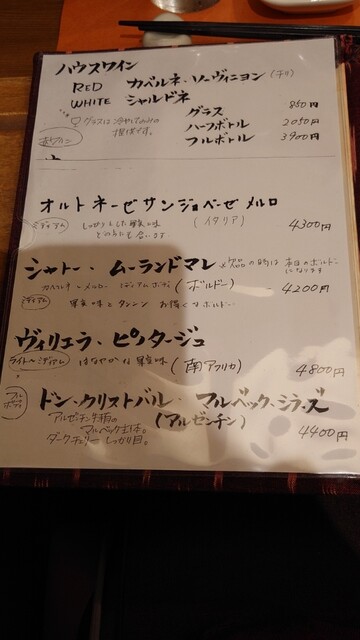 ハウスワイン
RED カベルネ・ソーヴィニヨン (チリ)
WHITE シャルドネ
グラス 850円
ハーフボトル 2050円
フルボトル 3900円
グラスは冷やしたのみの
提供です。
赤ワイン
オルトネーゼサンジョベーゼメルロ
ミディアム しっかりした果実味 (イタリア) 4300円
どの系にも合います
シャトー・ムーランドマレ ×欠品の時は本日のボルドー
になります
カベルネ・メルロー ミディアムボディ (ボルドー) 4200円
ミディアム 果実味とタンニン お値ごろボルドー
ヴィリエラ・ピノタージュ
ライト〜ミディアム はなやかな果実味 (南アフリカ) 4800円
フルボディ ドン・クリストバル・マルベック・シラーズ
アルゼンチン特有の (アルゼンチン)
マルベック主体。 4400円
ダークチェリーしっかり目。